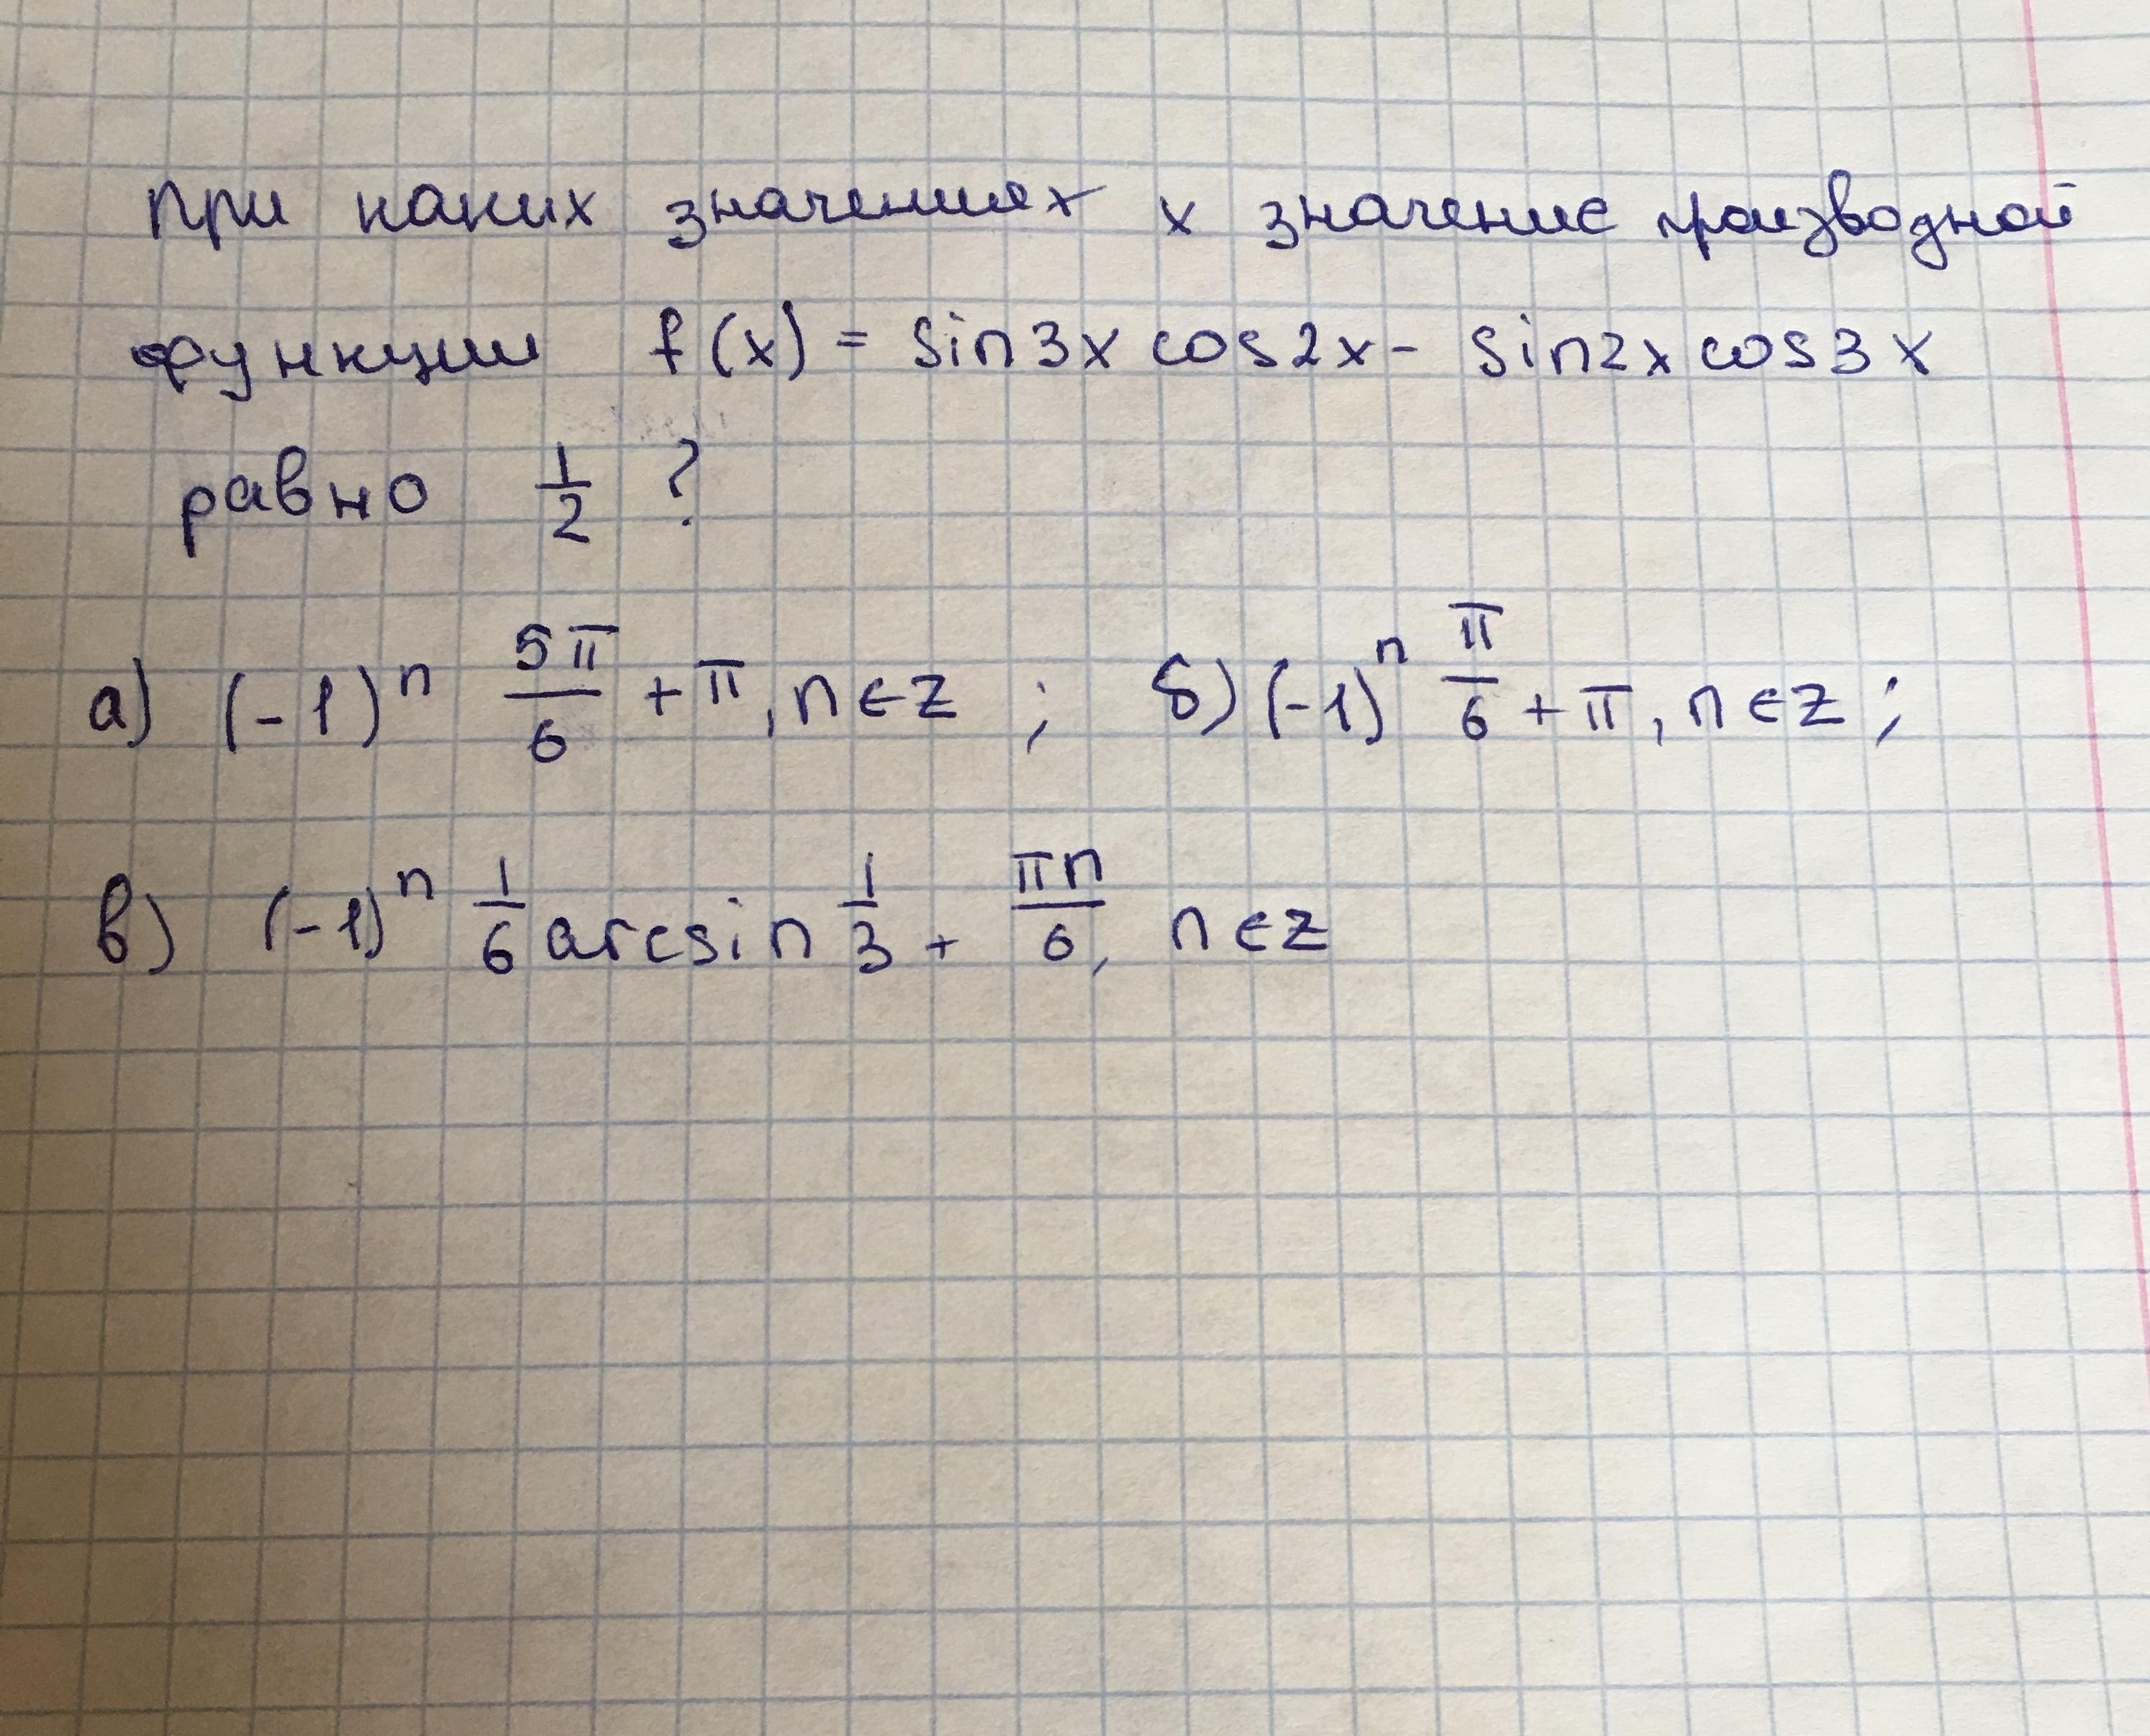 При каких значениях x значение производной
функции f(x) = sin3x cos2x - sin2x cos3x
равно 1/2 ?
а) (-1)^n 5π/6 + π, n∈z ; б) (-1)^n π/6 + π, n∈z ;
в) (-1)^n 1/6 arcsin 1/3 + πn/6, n∈z